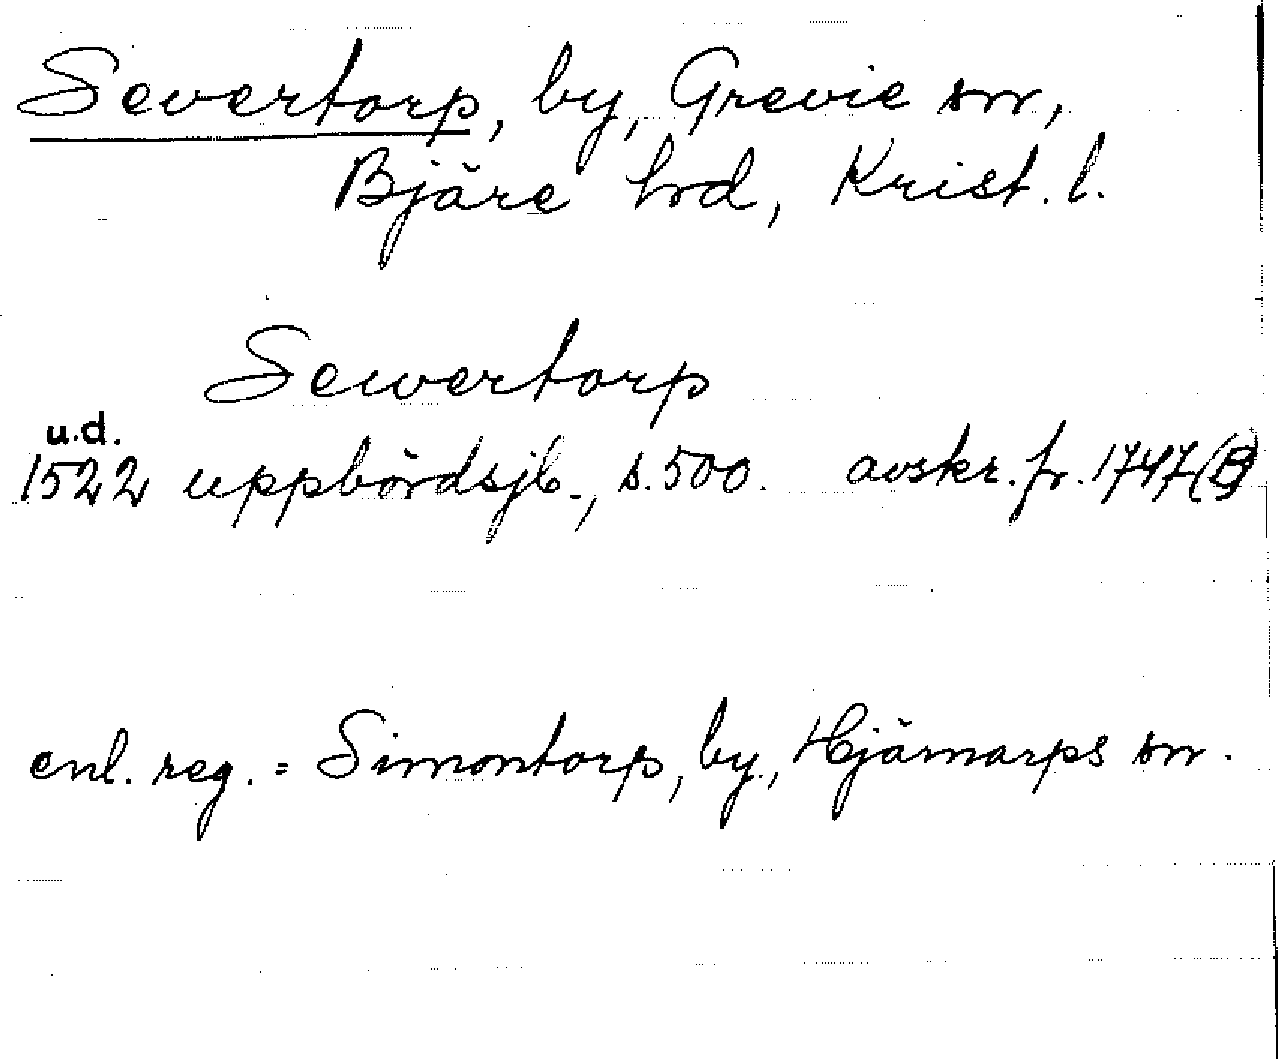 Severtorp, by, Grevie sn,
Bjäre hrd, Krist. l.
Sewertorp
u.d.
1522 uppbördsjb., s. 500. avskr. fr. 1747 (B)
enl. reg. = Simontorp, by, Hjärnarps sn.